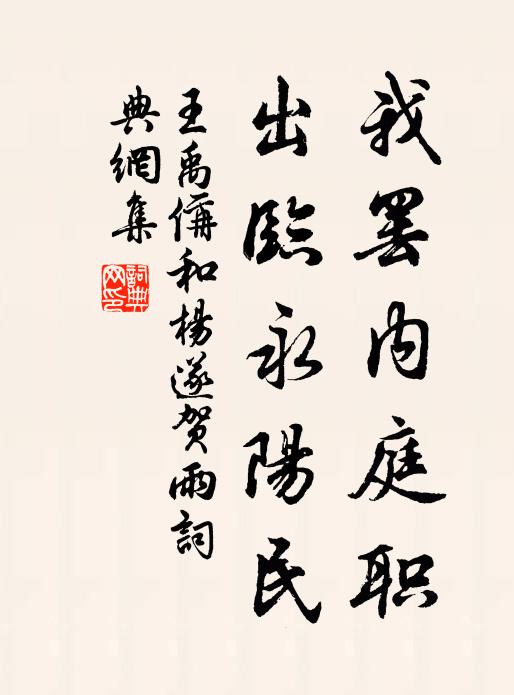 我罢内庭职
出臨永陽民
王禹偁和楊遂贺雨詞
典網集
詞典网印